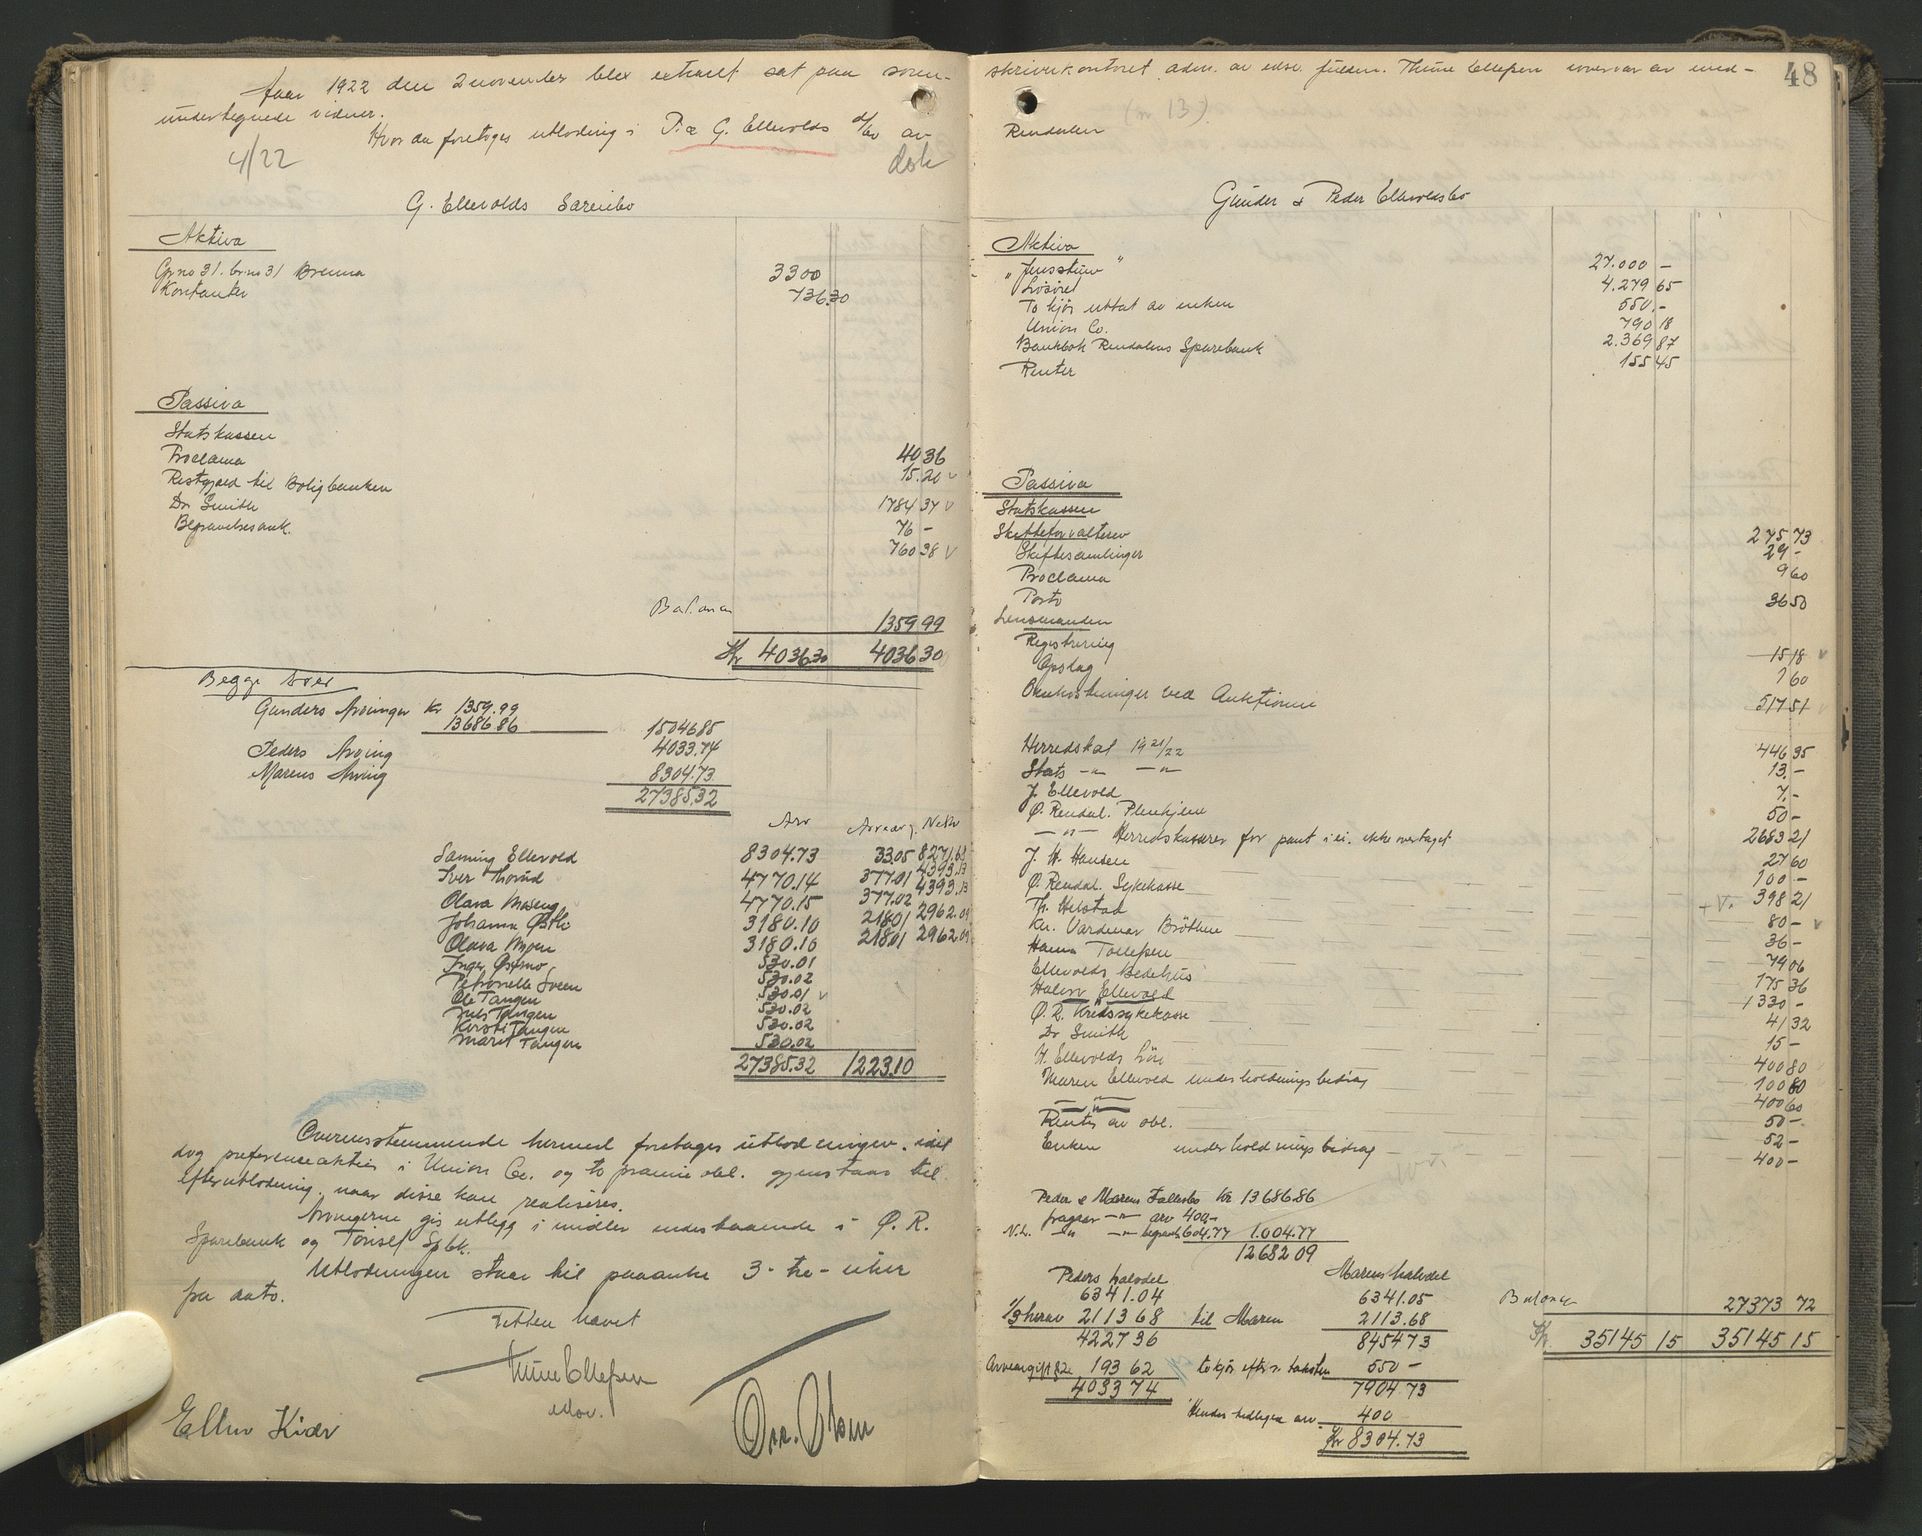 Aar 1922 den 2 november blev extraret sat paa soren-
undertegnede vidner.
Hvor da foretoges utloding i P. & G. Ellevolds d/bo av
4/22
dsk
G. Ellevolds Særeibo
Aktiva
Grno 31. brno 31 Brenna 3300
Kontanter 736.30
Passiva
Statskassen 40 36
Proclama 15.20
Restgjæld til Boligbanken 1784 37
Dr Smith 76 -
Begravelsesomk. 760 38
Balance 1359 99
Kr 4036.30 4036 30
Begge boer
Gunders Arvinger Kr 1359.99
13686 86 1504685
Peders Arving 4033.74
Marens Arving 8304.73
27385.32
Arv Arveavg. Netto
Sæming Ellevold 8304.73 33.05 8271.68
Iver 4770.14 377.01 4393.13
Olava Moseng 4770.15 377.02 4393.13
Johanna Østli 3180.10 21801 2962.09
Olava Moen 3180.10 21801 2962.09
Inger 530.01
Petronelle Sveen 530.02
Ole Tangen 530.01
Tangen 530.02
Kirsti Tangen 530.02
Marit Tangen 530.02
27385.32 1223.10
Overensstemmende hermed foretages utlodningen. idet
dog preferenceaktier i Union Co. og to præmie obl. gjenstaar til
efterutlodning, naar disse kan realiseres.
Arvingerne gis utlegg i midler indestaaende i Ø. R.
Sparebank og Tönset Spbk.
Utlodningen staar til paaanke 3 - tre - uker
fra dato.
Retten hævet
Thine Ellefsen
edsv.
Ellen Kidr Olsen
48
skriverkontoret adm. av edsv. fuldm. Thine Ellefsen overvær av med-
(nr 13).
Rendalen
Gunder & Peder Ellevoldsbo
Aktiva
" " 27.000 -
Lösöre 4.279 65
To kjör uttat av enken 550.-
Union Co. 790 18
Bankbok Rendalens Sparebank 2.369 87
Renter 155 45
Passiva
Statskassen 275 73
Skifteforvalteren 29 -
Skiftesamlinger 9 60
Proclama
Porto 36 50
Lensmanden
Registrering 15 18
Opslag 1 60
Omkostninger ved Auktionen 517 51
Herredskat 19 21/22 446 35
Stats -"- -"- 13.-
J. Ellevold 7.-
Ø. Rendal. Pleiehjem 50 -
-"- Herredskasserer for pant i ei. ikke overtaget 2683 21
J. H. Hansen 27 60
Ø. Rendal. Sykekasse 100 -
Th. Helstad 398 21
Kr. Vardenær Bröthen 80 -
Hanna Tollefsen 36 -
Ellevolds Bedehus 74 06
Halvor Ellevold 175 36
Ø. R. Kredssykekasse 1330 -
Dr Smith 41 32
H. Ellevolds Lön 15 -
Maren Ellevold underholdningsbidrag 400 80
-"- 100 80
400 60
Renter av obl. 50 -
52 -
Enken underholdningsbidrag 400 -
Peder & Marens Fællesbo Kr 13686.86
fragaar -"- arv 400.-
N.L. -"- -"- begravels 604.77 1.004.77
12682 09
Peders halvdel Marens halvdel
6341.04 6341.05
1/3 herav 2113 68 til Maren 2113.68
4227 36 8454 73
Arveavgift 193 62 to kjör efter taksten 550 -
4033 74 7904.73
400
Kr 8304.73
Balance 27373 72
Kr. 35145 15 35145 15